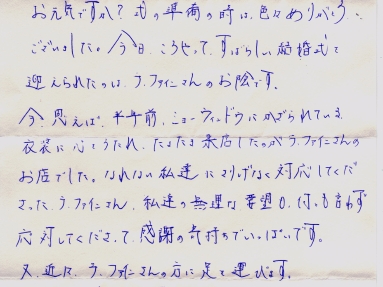 お元気ですか? 式の準備の時は、色々ありがとう
ございました。今日、こうやって、すばらしい結婚式を
迎えられたのは、ラ・ファインさんのお陰です。
今思えば、半年前、ショーウィンドウにかざられている
衣装に心をうたれ、たまたま来店したのがラ・ファインさんの
お店でした。なれない私達にさりげなく対応してくだ
さった、ラ・ファインさん、私達の無理な要望も、何も言わず
応対してくださって、感謝の気持ちでいっぱいです。
又、近々、ラ・ファインさんの方に足を運びます。